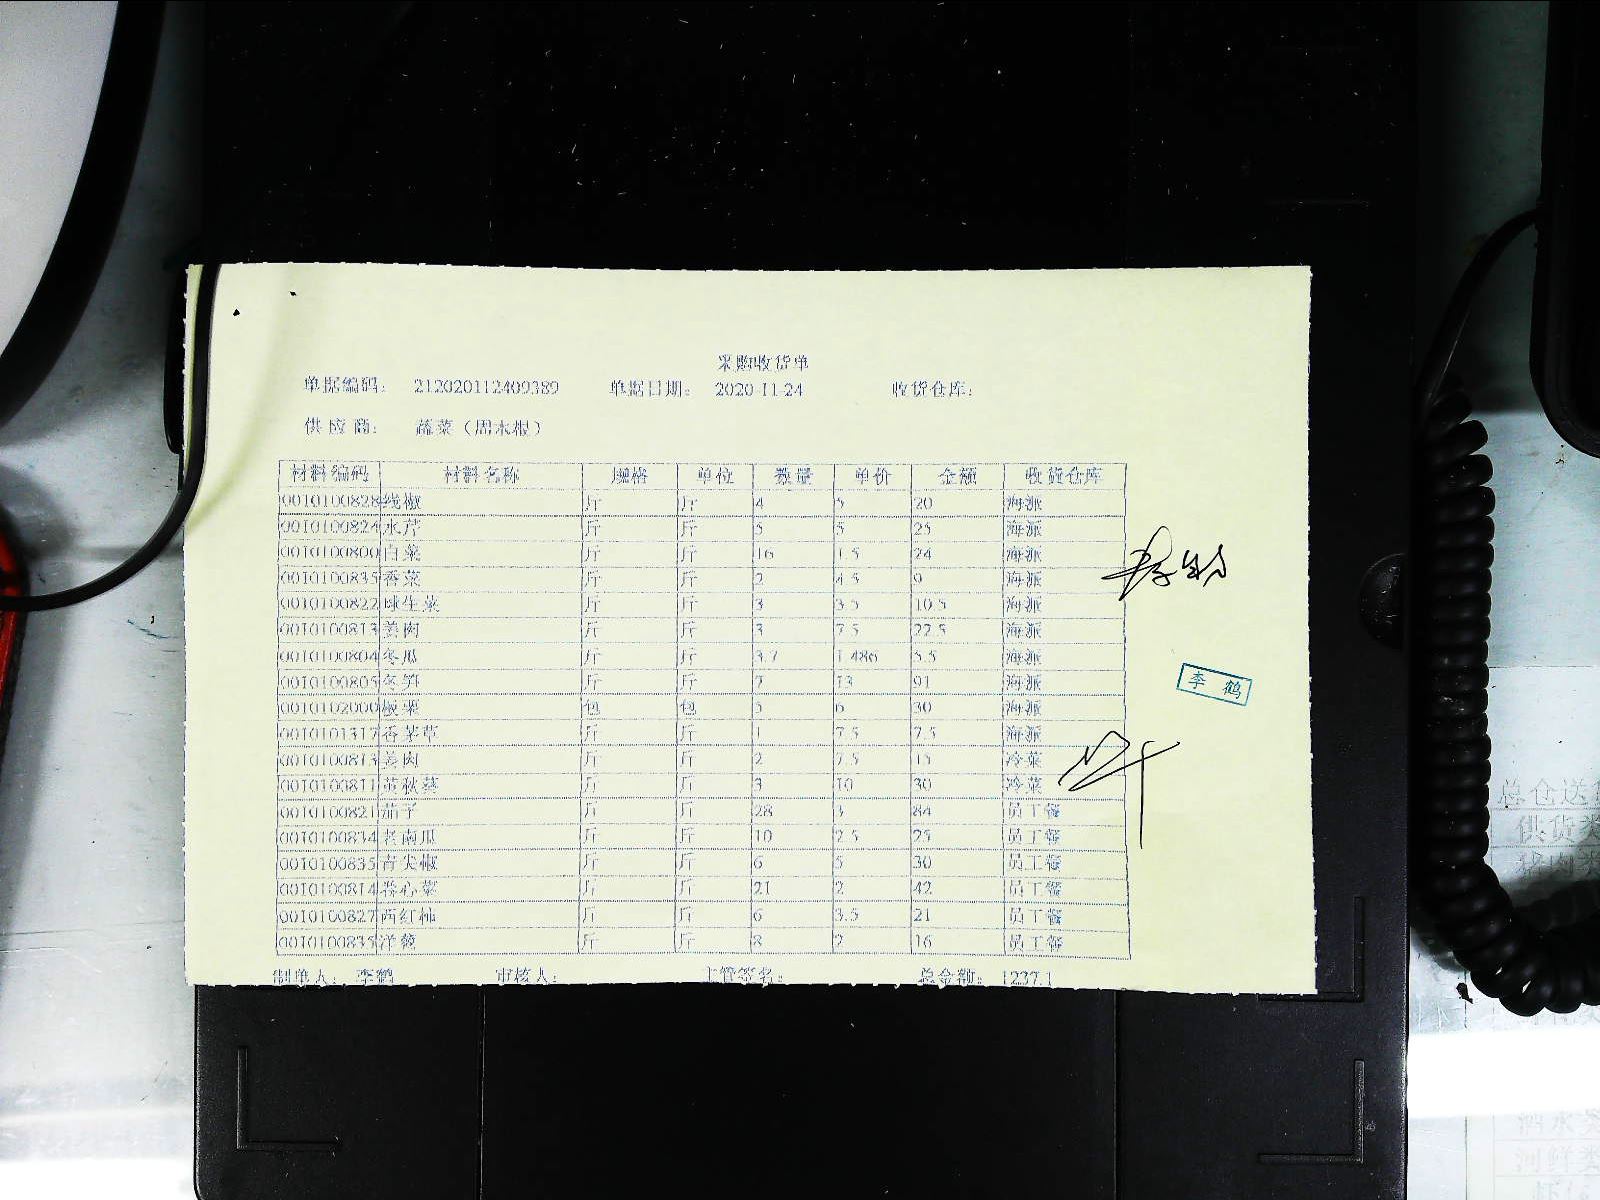 采购收货单
单据编码： 212020112409389 单据日期： 2020-11-24 收货仓库：
供应商： 蔬菜（周永根）
材料编码 材料名称 规格 单位 数量 单价 金额 收货仓库
0010100828 线椒 斤 斤 4 5 20 海派
0010100824 水芹 斤 斤 5 5 25 海派
0010100800 白菜 斤 斤 16 1.5 24 海派
0010100835 香菜 斤 斤 2 4.5 9 海派
0010100822 球生菜 斤 斤 3 3.5 10.5 海派
0010100813 姜肉 斤 斤 3 7.5 22.5 海派
0010100804 冬瓜 斤 斤 3.7 1.486 5.5 海派
0010100805 冬笋 斤 斤 7 13 91 海派
0010102000 包 包 5 6 30 海派
0010101317 香茅草 斤 斤 1 7.5 7.5 海派
0010100813 姜肉 斤 斤 2 7.5 15 冷菜
0010100811 黄秋葵 斤 斤 3 10 30 冷菜
0010100821 茄子 斤 斤 28 3 84 员工餐
0010100834 老南瓜 斤 斤 10 2.5 25 员工餐
0010100835 青尖椒 斤 斤 6 5 30 员工餐
0010100814 卷心菜 斤 斤 21 2 42 员工餐
0010100827 西红柿 斤 斤 6 3.5 21 员工餐
0010100835 洋葱 斤 斤 8 2 16 员工餐
制单人： 李鹤 审核人： 主管签名： 总金额： 1237.1
李鹤
总仓送货
供货类
猪肉类
酒水类
河鲜类